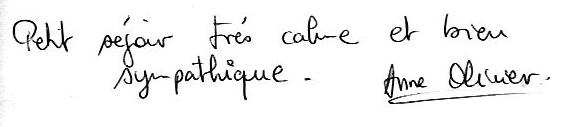 Petit séjour très calme et bien
sympathique. Anne Olivier.